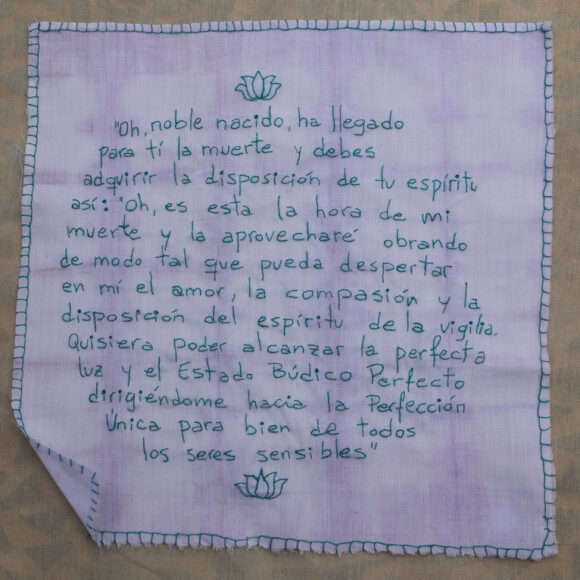 "Oh, noble nacido, ha llegado
para tí la muerte y debes
adquirir la disposición de tu espíritu
así: "Oh, es esta la hora de mi
muerte y la aprovecharé obrando
de modo tal que pueda despertar
en mí el amor, la compasión y la
disposición del espíritu de la vigilia.
Quisiera poder alcanzar la perfecta
luz y el Estado Búdico Perfecto
dirigiéndome hacia la Perfección
Única para bien de todos
los seres sensibles"